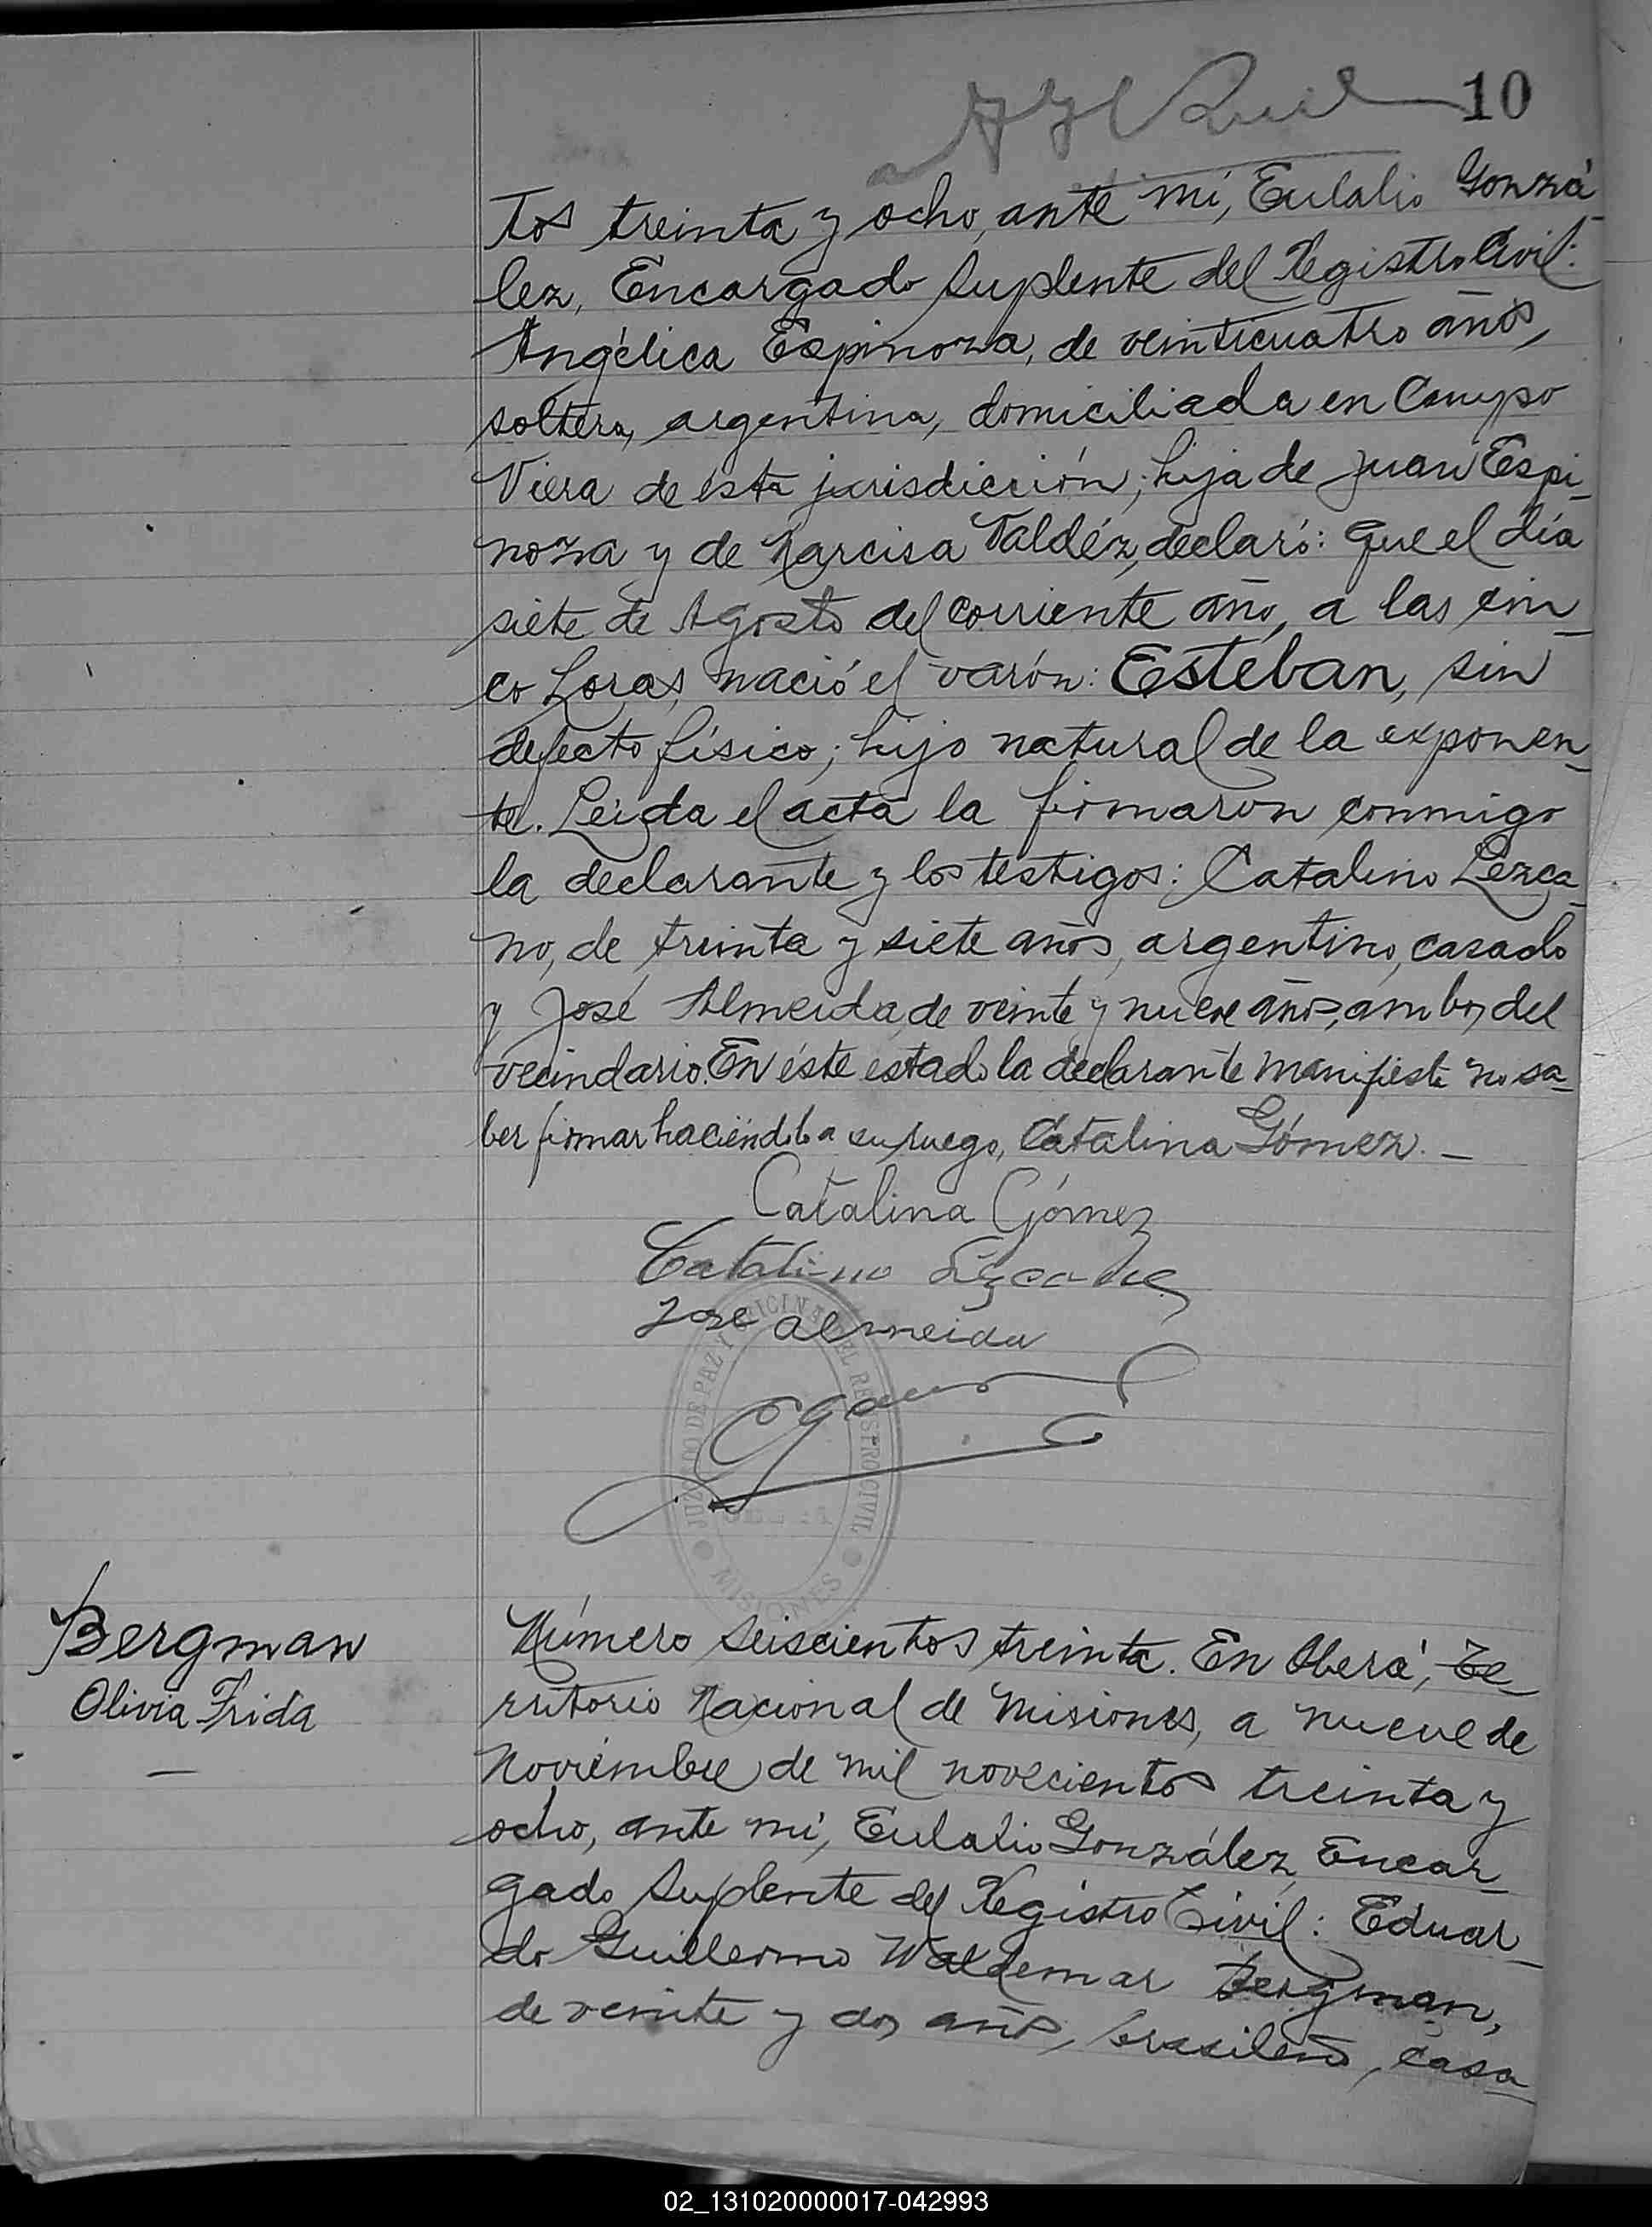 10
tos treinta y ocho, ante mí, Eulalio Gonzá-
lez, Encargado Suplente del Registro Civil:
Angélica Espinoza, de veinticuatro años,
soltera, argentina, domiciliada en Campo
Viera de esta jurisdicción; hija de Juan Espi-
noza y de Narcisa Valdéz, declaró: que el día
siete de Agosto del corriente año, a las cin-
co horas, nació el varón: Esteban, sin
defecto físico; hijo natural de la exponen-
te. Leída el acta la firmaron conmigo
la declarante y los testigos: Catalino Lezca-
no, de treinta y siete años, argentino, casado
y José Almeida, de veinte y nueve años, ambos del
vecindario. En éste estado la declarante manifiesta no sa-
ber firmar haciéndolo a su ruego, Catalina Gómez. —
Catalina Gómez
Catalino Lezcano
Jose almeida
JUZGADO DE PAZ Y OFICINA DEL REGISTRO CIVIL
MISIONES
Bergman
Olivia Frida
—
Número Seiscientos treinta. En Oberá, Te-
rritorio Nacional de Misiones, a nueve de
Noviembre de mil novecientos treinta y
ocho, ante mí, Eulalio González, Encar-
gado Suplente del Registro Civil: Eduar-
do Guillermo Waldemar Bergman,
de veinte y dos años, brasileño, casa-
02_131020000017-042993